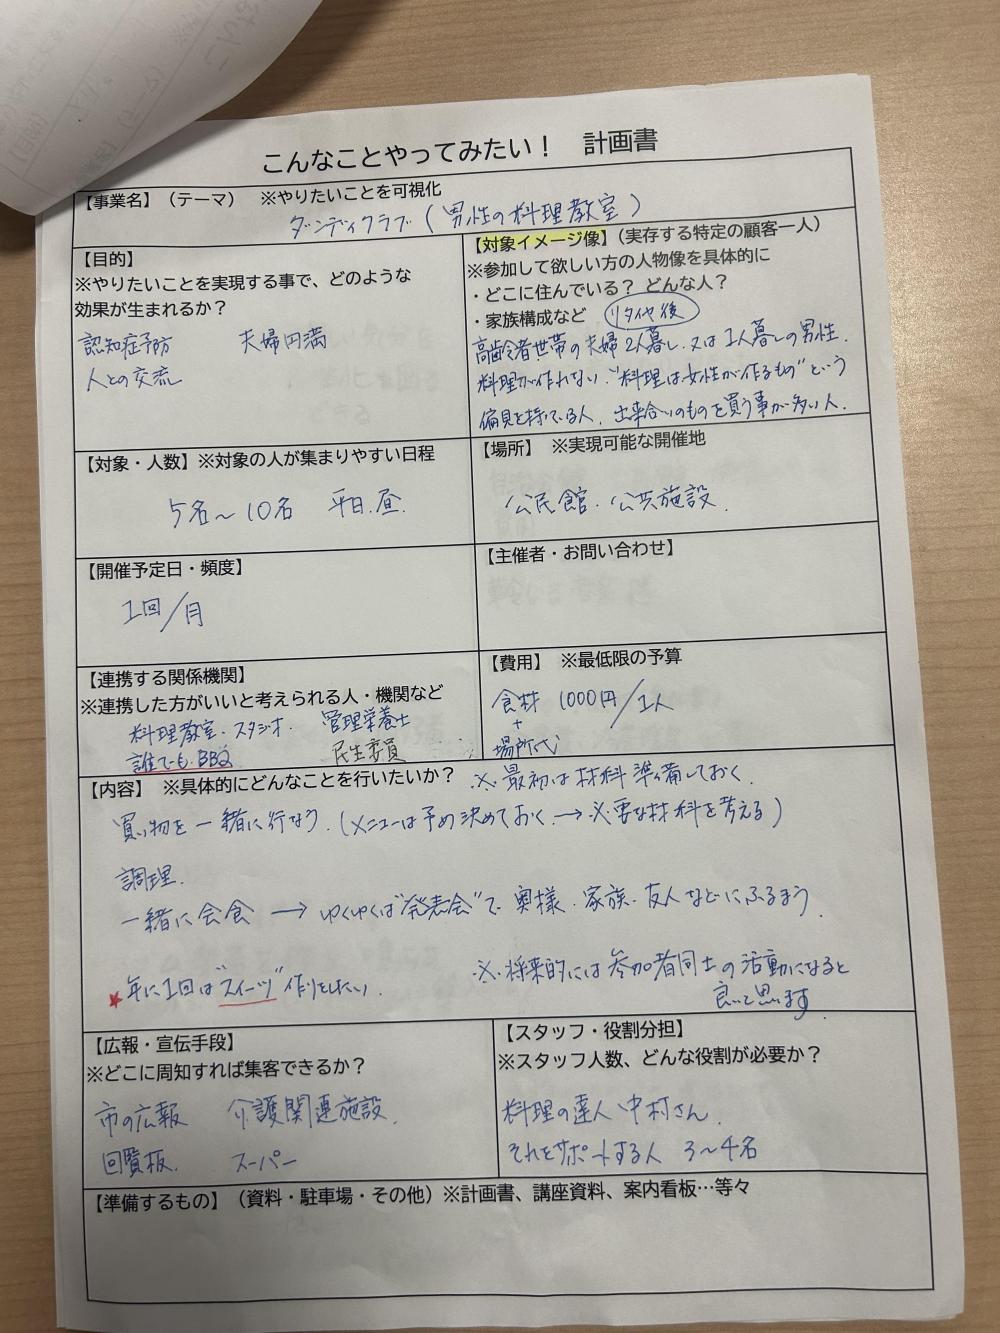 こんなことやってみたい！　計画書
【事業名】（テーマ）　※やりたいことを可視化
ダンディクラブ（男性の料理教室）
【目的】
※やりたいことを実現する事で、どのような
効果が生まれるか？
認知症予防　夫婦円満
人との交流
【対象イメージ像】（実存する特定の顧客一人）
※参加して欲しい方の人物像を具体的に
・どこに住んでいる？ どんな人？
・家族構成など　リタイヤ後
高齢者世帯の夫婦2人暮し、又は1人暮しの男性.
料理が作れない."料理は女性が作るもの"という
偏見を持っている人. 出来合いのものを買う事が多い人.
【対象・人数】※対象の人が集まりやすい日程
5名～10名　平日.昼.
【場所】　※実現可能な開催地
公民館・公共施設.
【開催予定日・頻度】
1回/月
【主催者・お問い合わせ】
【連携する関係機関】
※連携した方がいいと考えられる人・機関など
料理教室・スタジオ・　管理栄養士
誰でも BBQ　民生委員
【費用】　※最低限の予算
食材　1000円/1人
+
場所代
【内容】　※具体的にどんなことを行いたいか？　※最初は材料準備しておく.
買い物を一緒に行なう.（メニューは予め決めておく→必要な材料を考える）
調理.
一緒に会食 → ゆくゆくは"発表会"で 奥様・家族・友人などにふるまう.
★年に1回は"スイーツ"作りをしたい.
※将来的には参加者同士の活動になると
良いと思います.
【広報・宣伝手段】
※どこに周知すれば集客できるか？
市の広報　介護関連施設.
回覧板.　スーパー
【スタッフ・役割分担】
※スタッフ人数、どんな役割が必要か？
料理の達人 中村さん.
それをサポートする人　3～4名
【準備するもの】（資料・駐車場・その他）※計画書、講座資料、案内看板…等々